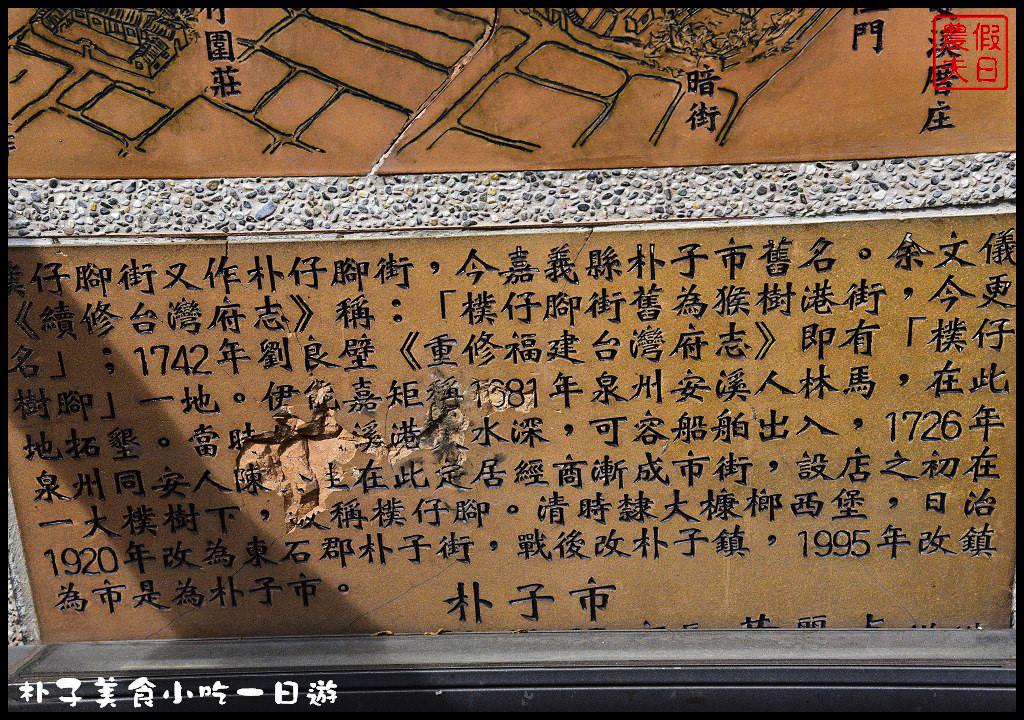 竹圍莊
暗街
門
溪厝庄
假日農夫
樸仔腳街又作朴仔腳街，今嘉義縣朴子市舊名。余文儀
《續修台灣府志》稱：「樸仔腳街舊為猴樹港街，今更
名」；1742年劉良壁《重修福建台灣府志》即有「樸仔
樹腳」一地。伊能嘉矩稱1681年泉州安溪人林馬，在此
地拓墾。當時 溪港 水深，可容船舶出入，1726年
泉州同安人陳 生在此定居經商漸成市街，設店之初在
一大樸樹下，故稱樸仔腳。清時隸大槺榔西堡，日治
1920年改為東石郡朴子街，戰後改朴子鎮，1995年改鎮
為市是為朴子市。
朴子市
朴子美食小吃一日遊